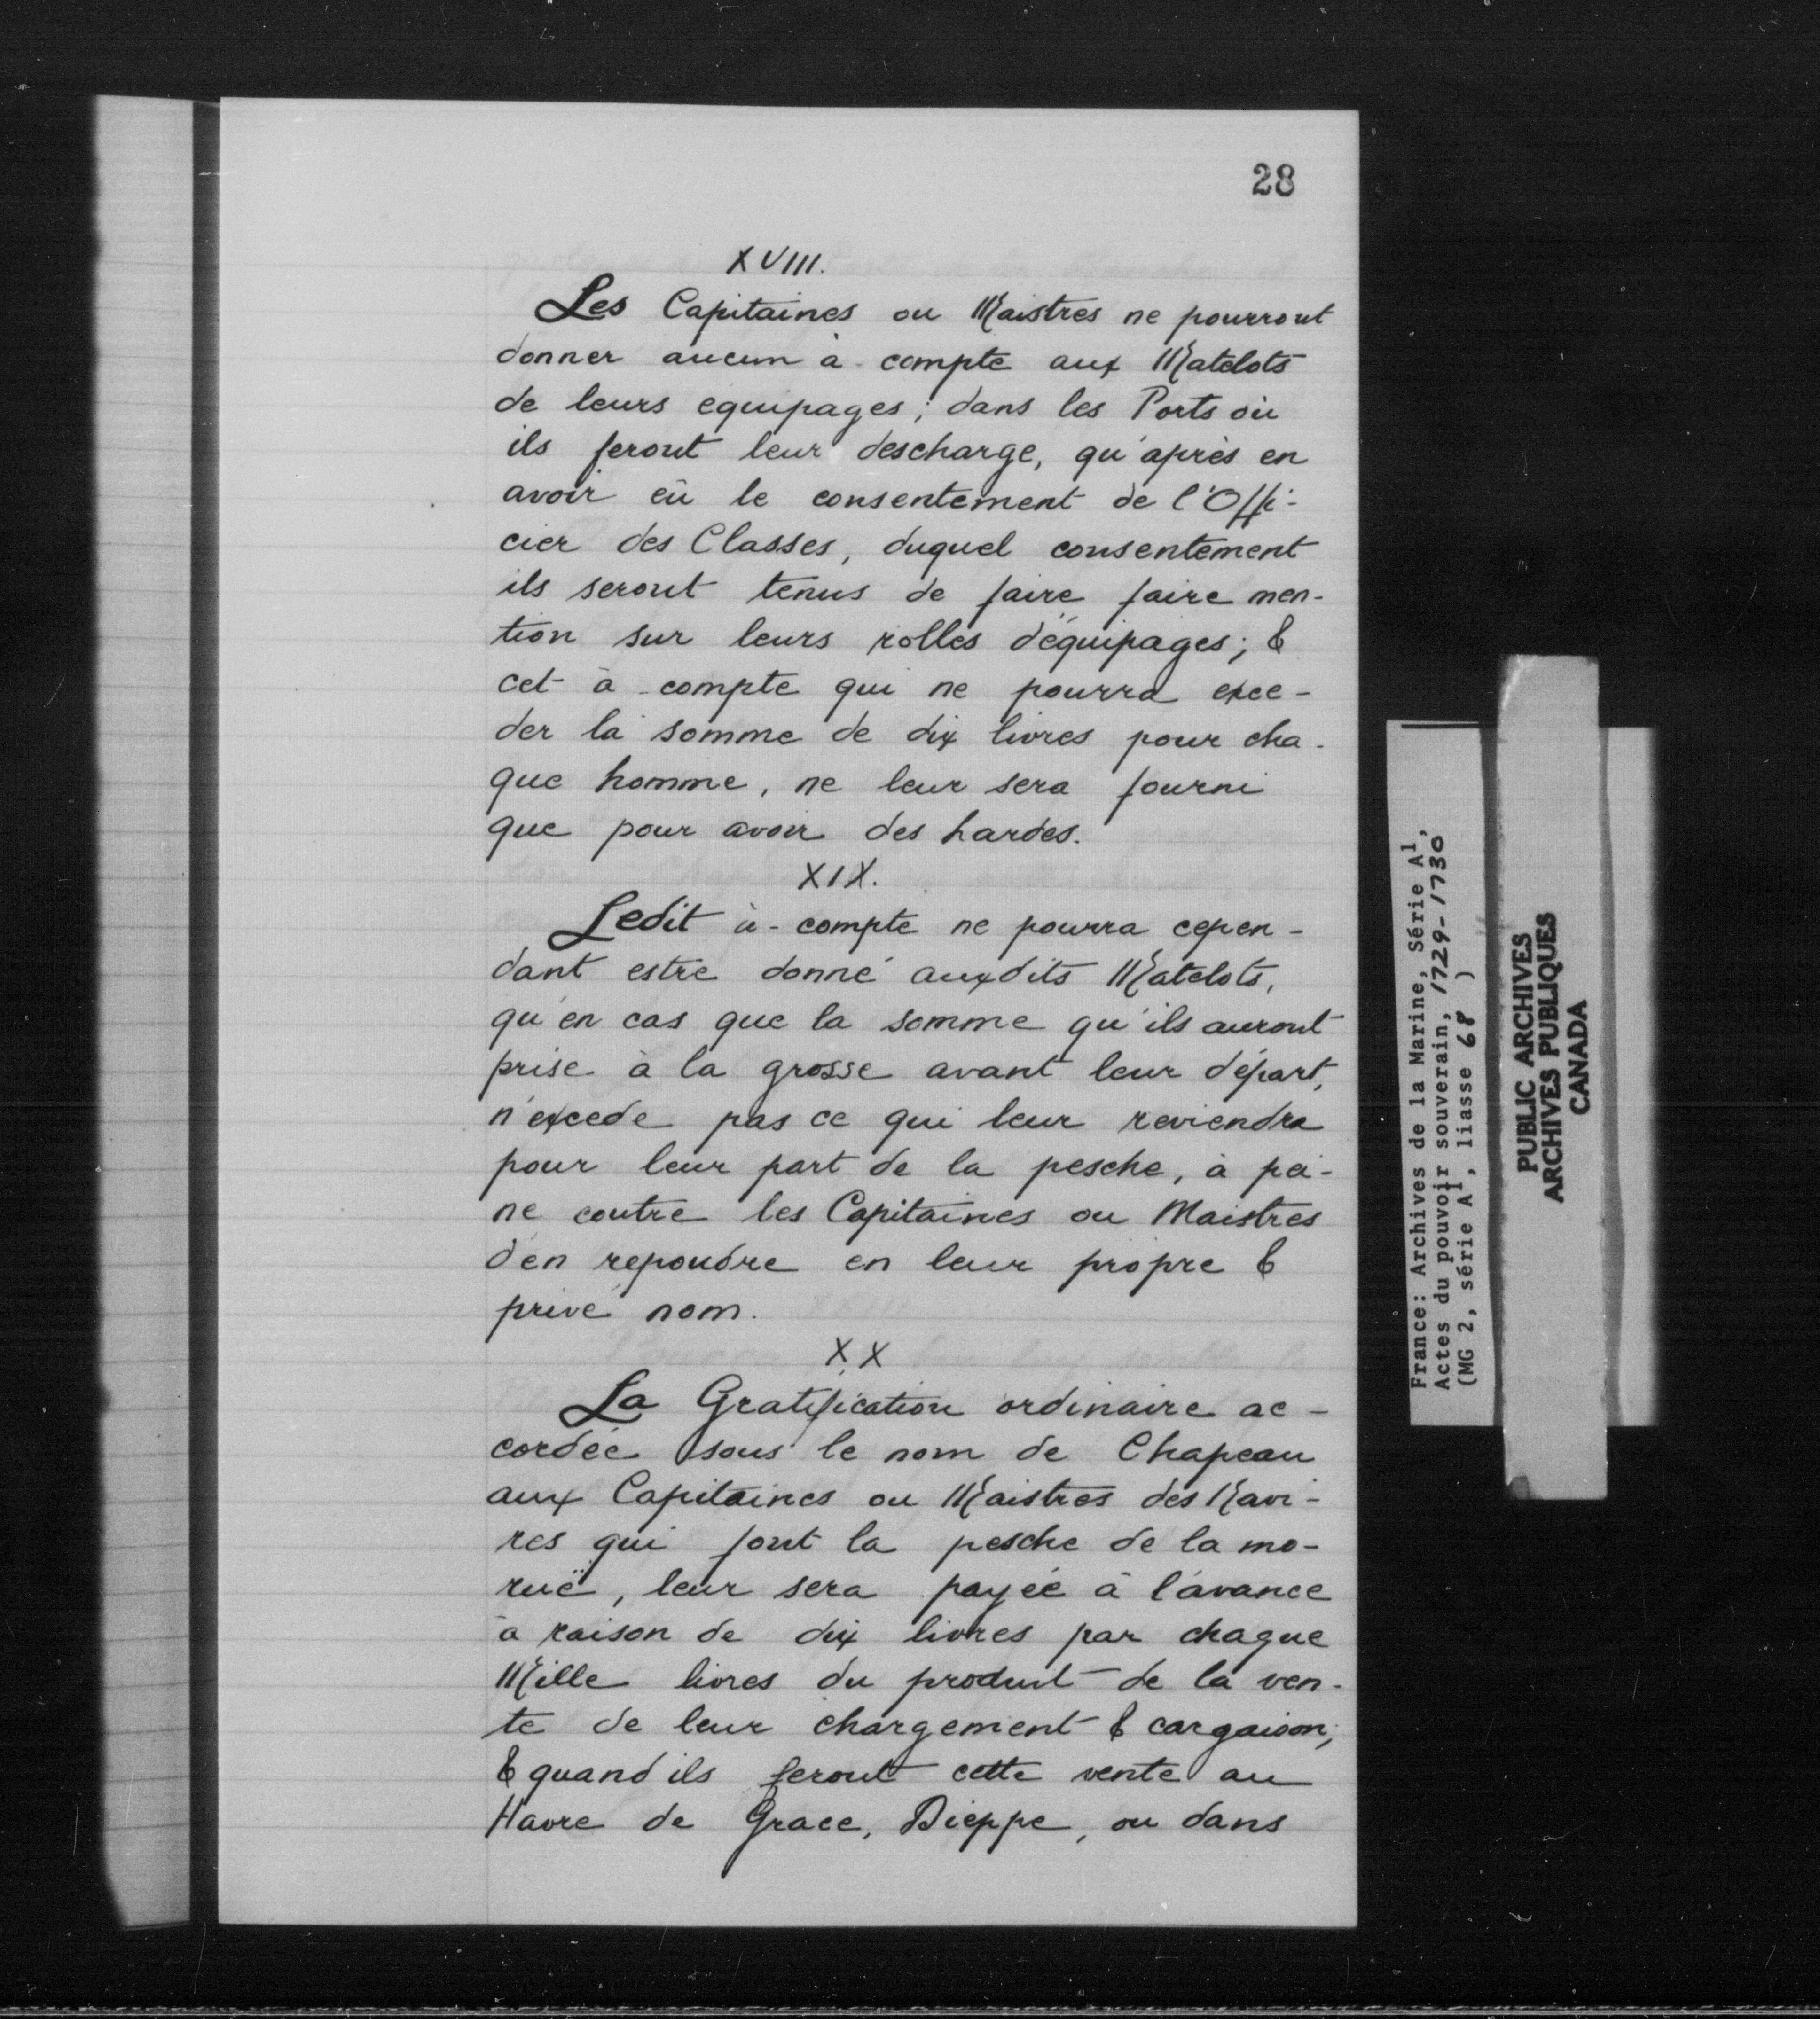 28
XVIII.
Les Capitaines ou Maistres ne pourront
donner aucun à-compte aux Matelots
de leurs equipages; dans les Ports où
ils feront leur descharge, qu'après en
avoir eû le consentement de l'Offi-
cier des Classes, duquel consentement
ils seront tenus de faire faire men-
tion sur leurs rolles d'équipages; &
cet à-compte qui ne pourra exce-
der la somme de dix livres pour cha-
que homme, ne leur sera fourni
que pour avoir des hardes.
XIX.
Ledit à-compte ne pourra cepen-
dant estre donné auxdits Matelots,
qu'en cas que la somme qu'ils auront
prise à la grosse avant leur départ,
n'excede pas ce qui leur reviendra
pour leur part de la pesche, à pei-
ne contre les Capitaines ou Maistres
d'en repondre en leur propre &
privé nom.
XX
La Gratification ordinaire ac-
cordée sous le nom de Chapeau
aux Capitaines ou Maistres des Navi-
res qui font la pesche de la mo-
ruë, leur sera payée à l'avance
à raison de dix livres par chaque
Mille livres du produit de la ven-
te de leur chargement & cargaison;
& quand ils feront cette vente au
Havre de Grace, Dieppe, ou dans
France: Archives de la Marine, Série A1,
Actes du pouvoir souverain, 1729-1730
(MG 2, série A1, liasse 68 )
PUBLIC ARCHIVES
ARCHIVES PUBLIQUES
CANADA